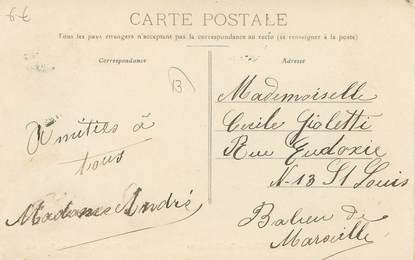 6€
CARTE POSTALE
Tous les pays étrangers n'acceptent pas la correspondance au recto (se renseigner à la poste)
Correspondance
Adresse
13
Amitiés à
tous
Madame André
Mademoiselle
Cecile Gioletti
Rue Eudoxie
N-13 St Louis
Balieu de
Marseille